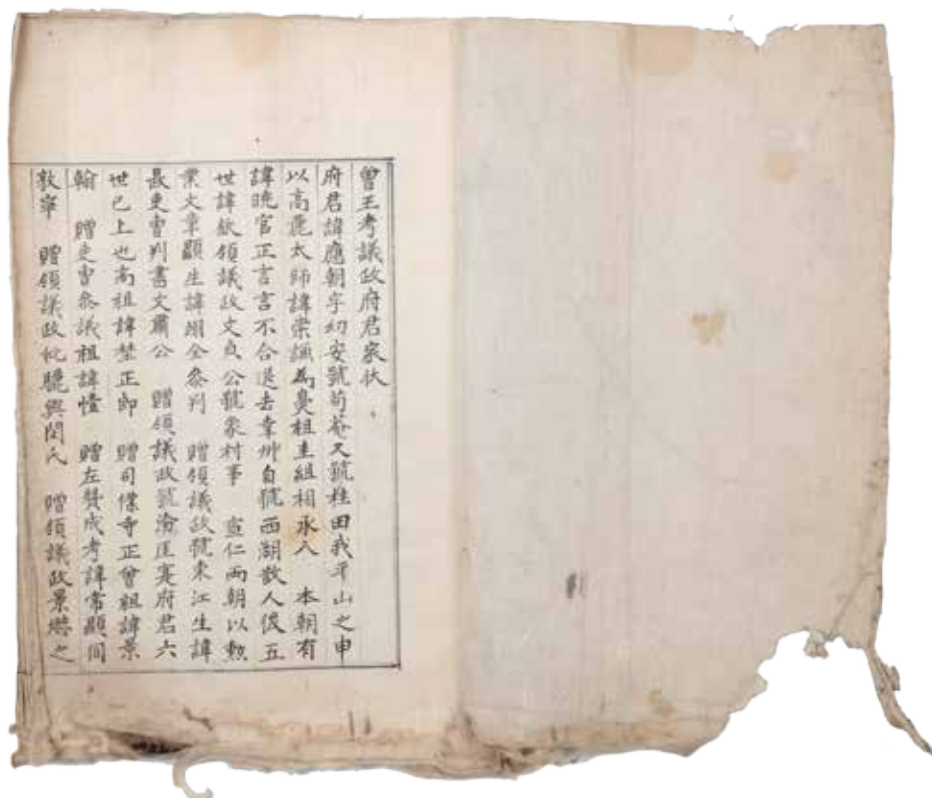 曾王考議政府君家狀
府君諱應朝字幼安號苟菴又號桂田我平山之申
以高麗太師諱崇謙為鼻祖圭組相承入 本朝有
諱曉官正言言不合退去幸州自號西湖散人後五
世諱欽領議政文貞公號象村事 宣仁兩朝以勲
業文章顯生諱翊全叅判 贈領議政號東江生諱
晸吏曹判書文肅公 贈領議政號汾厓寔府君六
世已上也高祖諱埜正郎 贈司僕寺正曾祖諱景
翰 贈吏曹叅議祖諱㦃 贈左贊成考諱常顯同
敦寧 贈領議政妣驪興閔氏 贈領議政景爀之